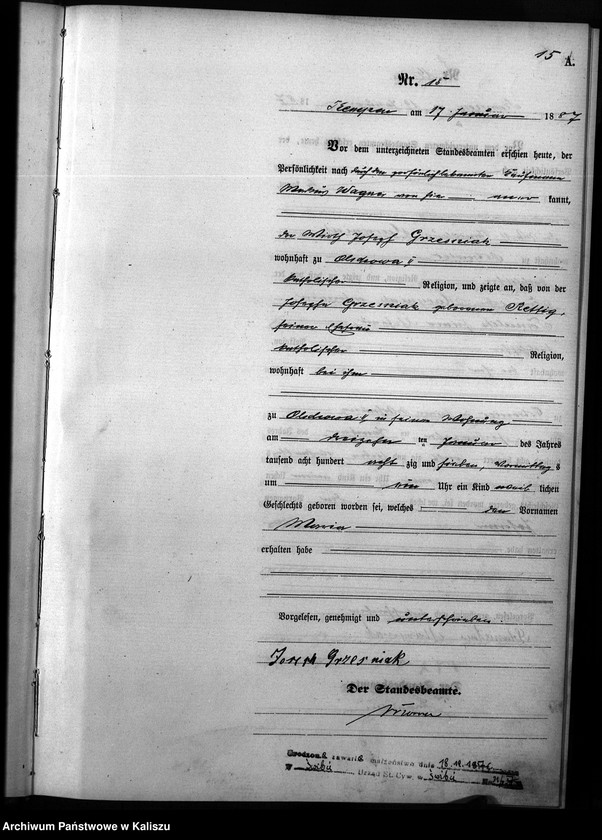 15 A.
Nr. 15
Kempen am 17 Januar 1887
Vor dem unterzeichneten Standesbeamten erschien heute, der
Persönlichkeit nach durch den
Wagner kannt,
der Wirth Josef Grzesniak
wohnhaft zu
katholischer Religion, und zeigte an, daß von der
Josepha Grzesniak geborenen Rettig,
seiner Ehefrau
katholischer Religion,
wohnhaft bei ihm
zu in seiner Wohnung
am dreizehn ten Januar des Jahres
tausend acht hundert acht zig und sieben, Vormittag s
um Uhr ein Kind weib lichen
Geschlechts geboren worden sei, welches den Vornamen
Maria
erhalten habe
Vorgelesen, genehmigt und unterschrieben.
Grzesniak
Der Standesbeamte.
zawarł małżeństwo dnia
w Urząd St. Cyw. w
Archiwum Państwowe w Kaliszu